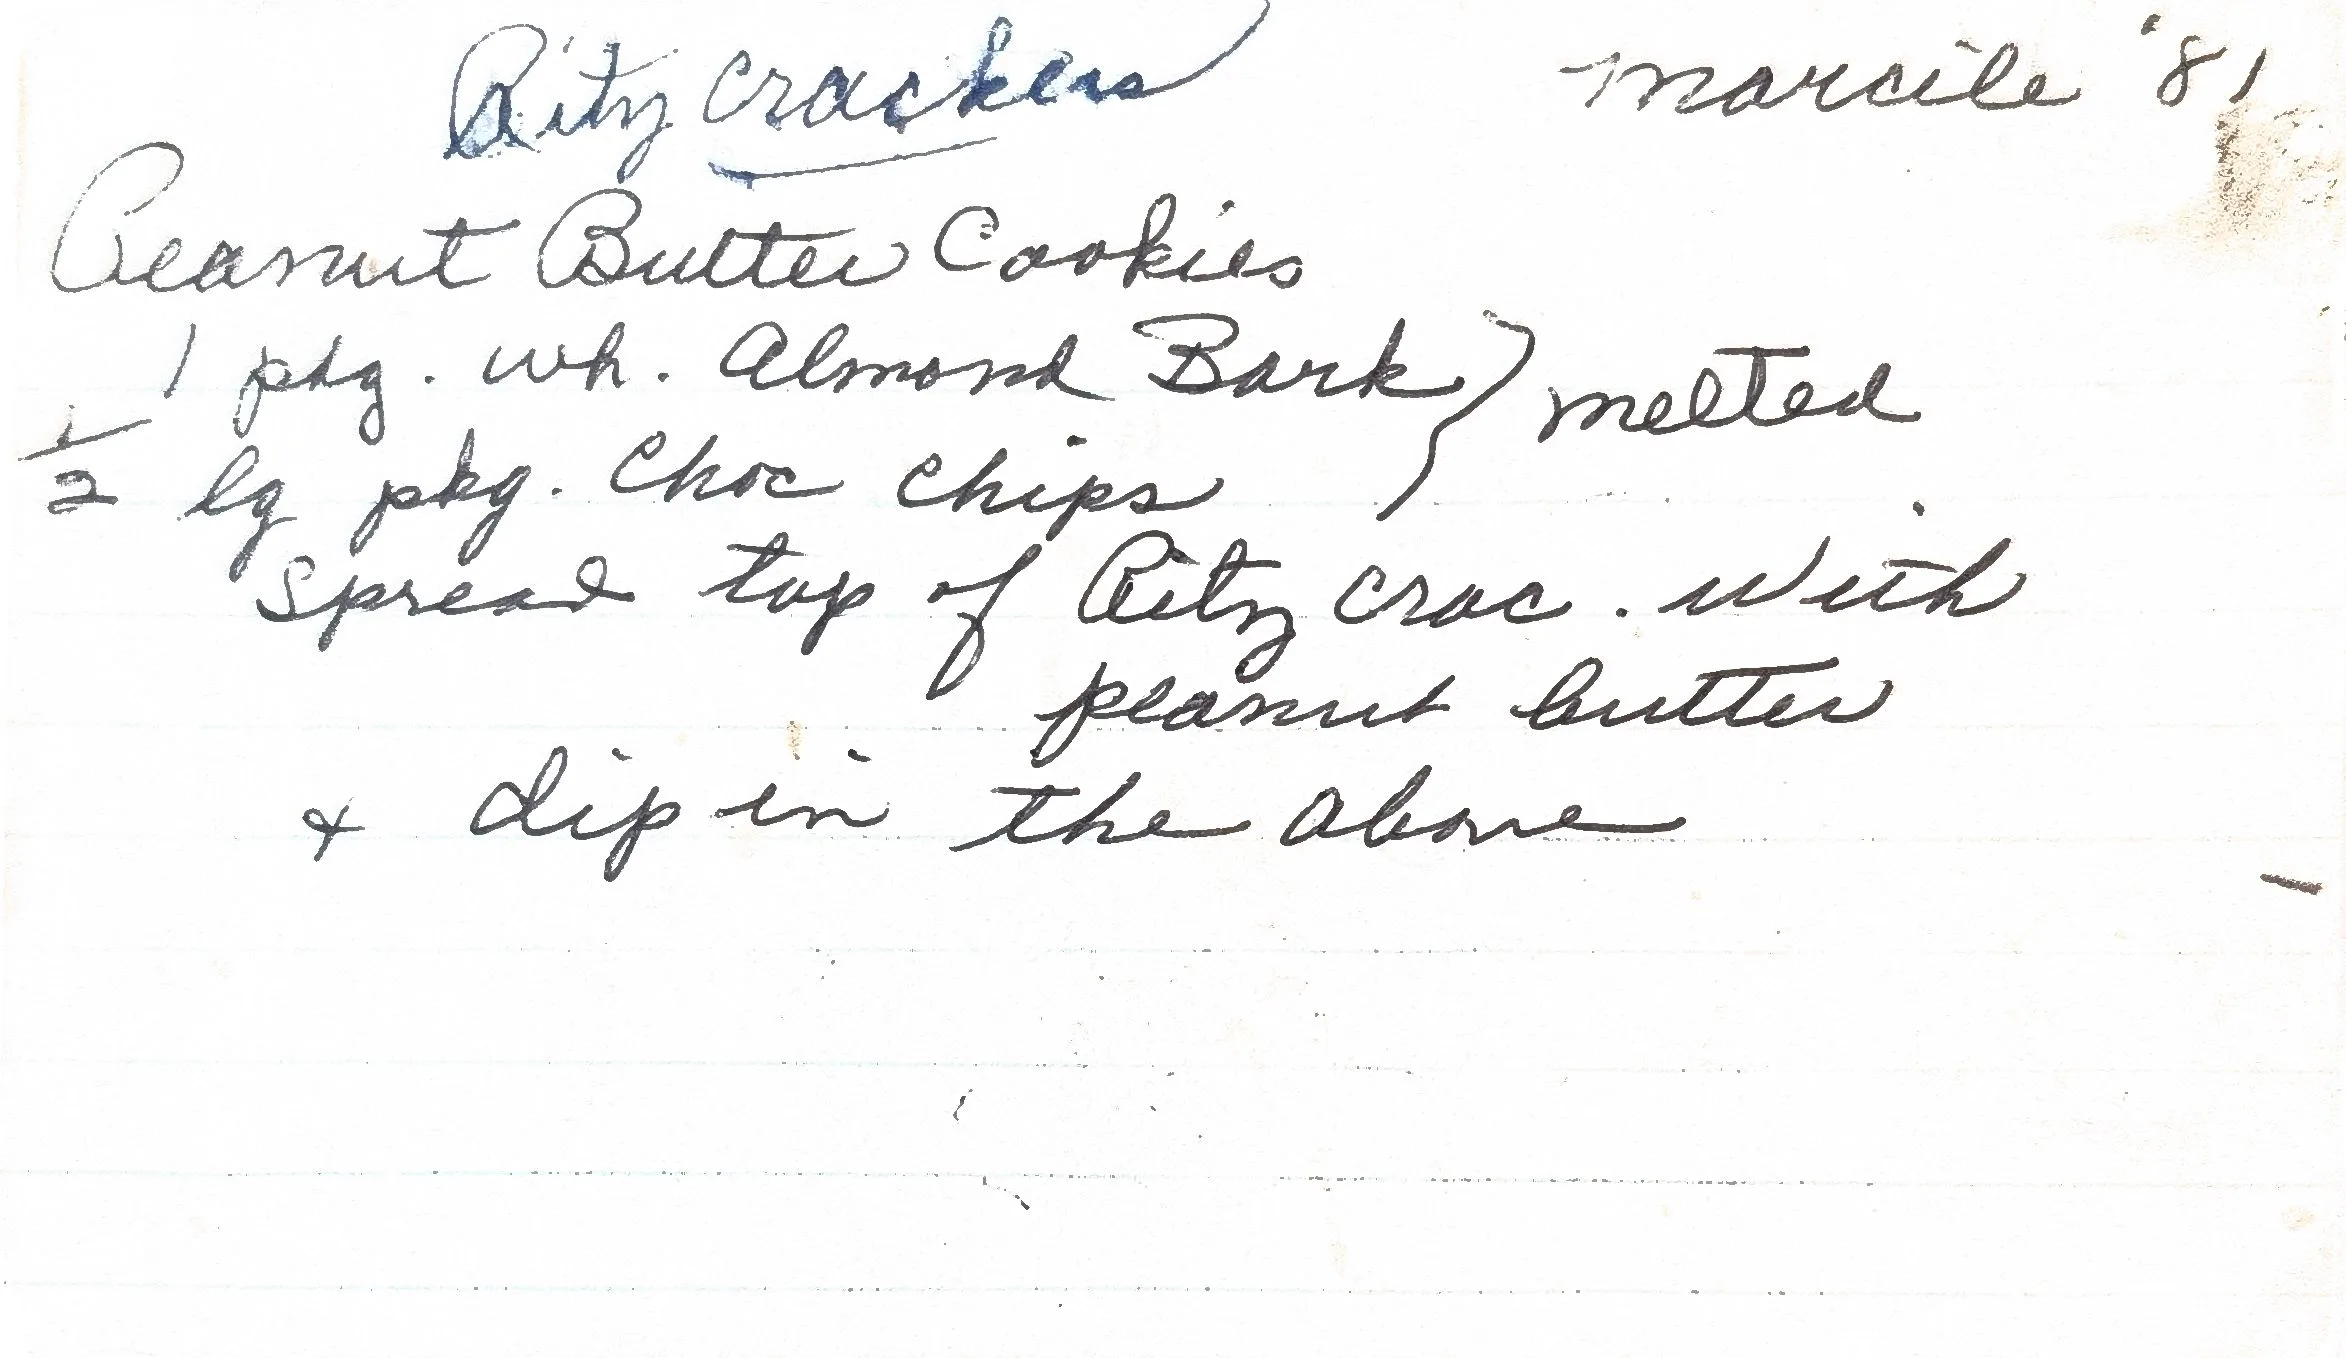 Ritz crackers
Marcile '81
Peanut Butter Cookies
1 pkg. wh. Almond Bark } melted
1/2 lg pkg. Choc chips
Spread top of Ritz crac. with
peanut butter
& dip in the above